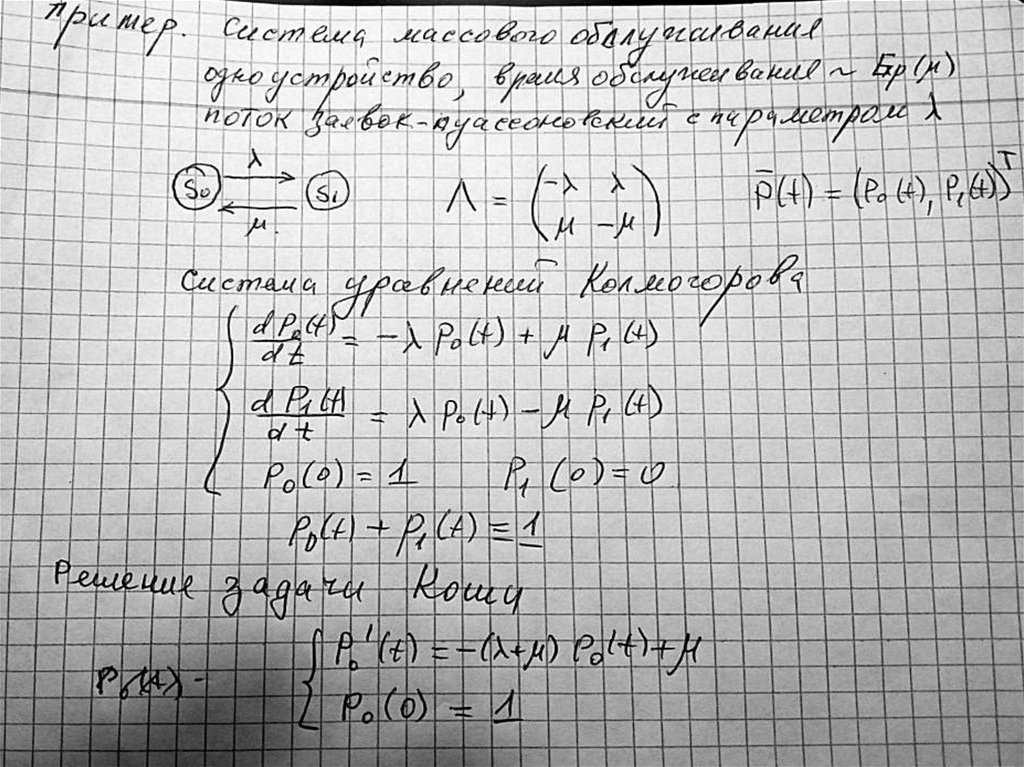 Пример. Система массового обслуживания
одно устройство, время обслуживания ~ Exp(μ)
поток заявок - пуассоновский с параметром λ
S₀ λ μ S₁ Λ = (-λ λ μ -μ) p̄(t) = (P₀(t), P₁(t))ᵀ
Система уравнений Колмогорова
dP₀(t)/dt = -λ P₀(t) + μ P₁(t)
dP₁(t)/dt = λ P₀(t) - μ P₁(t)
P₀(0) = 1 P₁(0) = 0
P₀(t) + P₁(t) ≡ 1
Решение задачи Коши
P₀'(t) = -(λ+μ) P₀(t) + μ
P₀(0) = 1